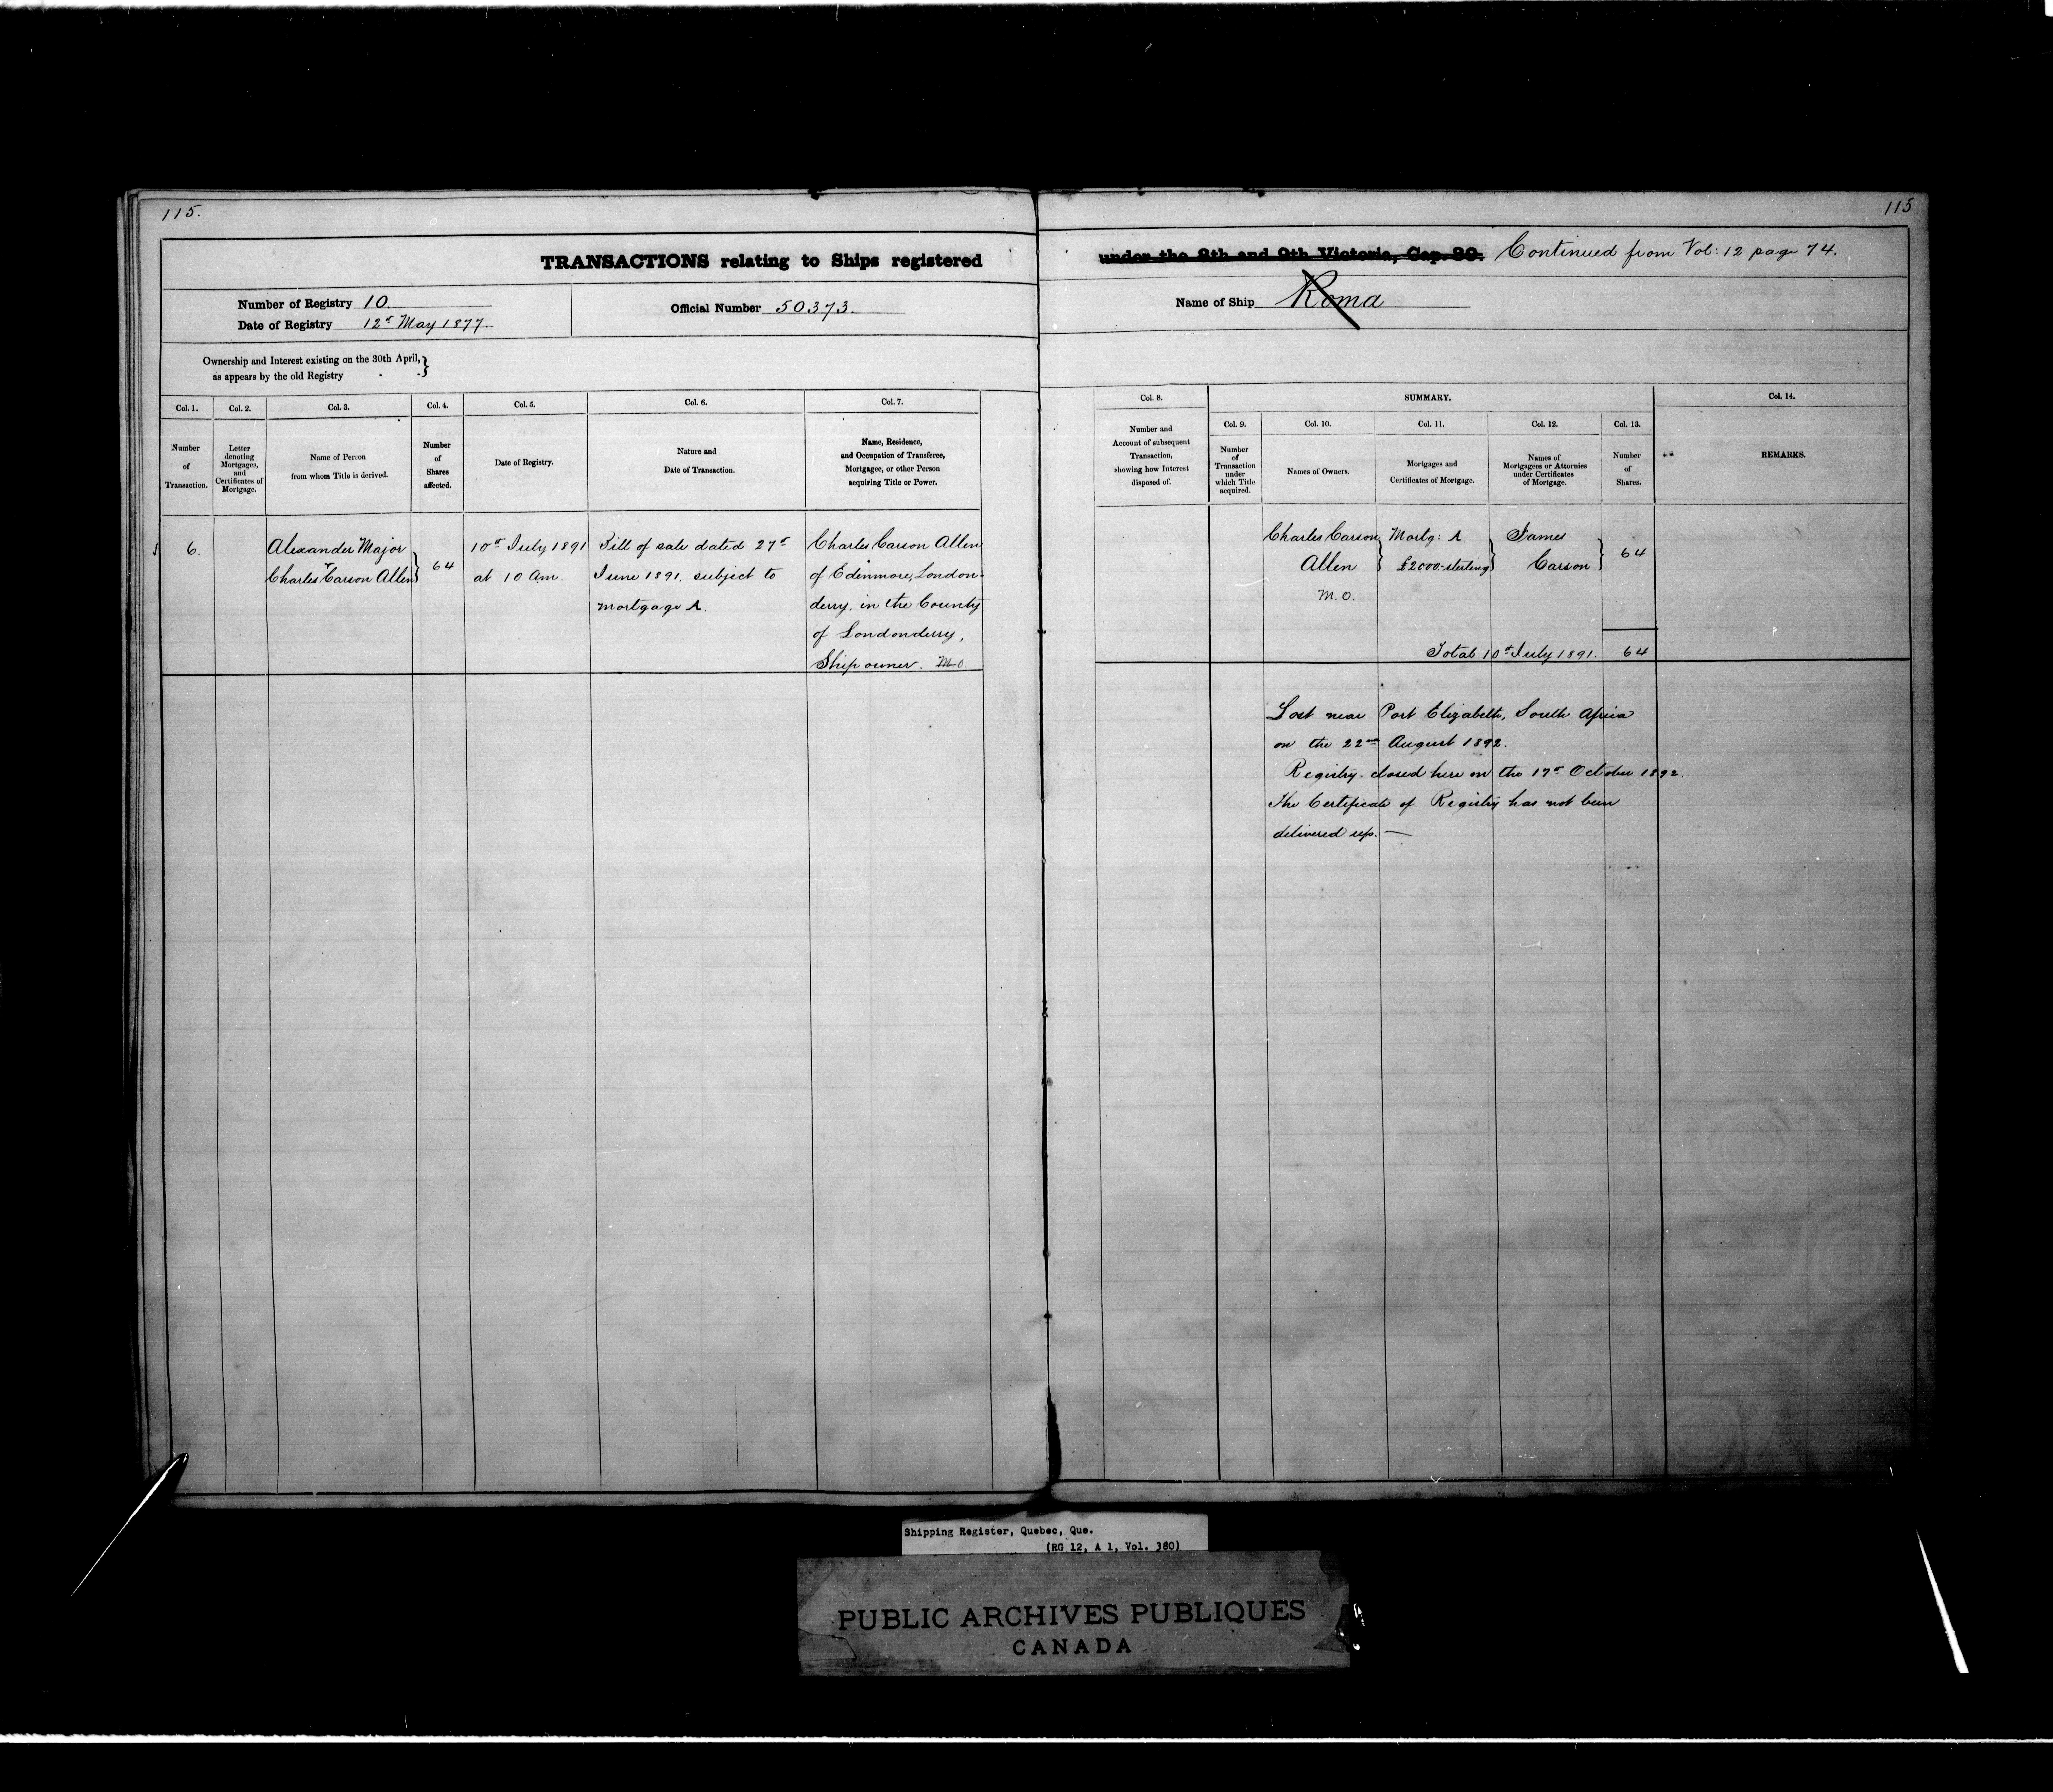 115.
115
TRANSACTIONS relating to Ships registered under the 8th and 9th Victoria, Cap. 89. Continued from Vol: 12 page 74.
Number of Registry 10.
Date of Registry 12th May 1877.
Official Number 50373.
Name of Ship Roma
Ownership and Interest existing on the 30th April,
as appears by the old Registry
Col. 1.
Number
of
Transaction.
Col. 2.
Letter
denoting
Mortgages,
and
Certificates of
Mortgage.
Col. 3.
Name of Person
from whom Title is derived.
Col. 4.
Number
of
Shares
affected.
Col. 5.
Date of Registry.
Col. 6.
Nature and
Date of Transaction.
Col. 7.
Name, Residence,
and Occupation of Transferee,
Mortgagee, or other Person
acquiring Title or Power.
Col. 8.
Number and
Account of subsequent
Transaction,
showing how Interest
disposed of.
SUMMARY.
Col. 9.
Number
of
Transaction
under
which Title
acquired.
Col. 10.
Names of Owners.
Col. 11.
Mortgages and
Certificates of Mortgage.
Col. 12.
Names of
Mortgagees or Attornies
under Certificates
of Mortgage.
Col. 13.
Number
of
Shares.
Col. 14.
REMARKS.
6.
Alexander Major
+
Charles Carson Allen
64
10th July 1891
at 10 Am.
Bill of sale dated 27th
June 1891, subject to
mortgage A.
Charles Carson Allen
of Edenmore, London-
derry, in the County
of Londonderry,
Ship owner. M.O.
Charles Carson
Allen
M.O.
Mortg: A
£2000 sterling
James
Carson
64
Total 10th July 1891. 64
Lost near Port Elizabeth, South Africa
on the 22nd August 1892.
Registry closed here on the 17th October 1892.
The Certificate of Registry has not been
delivered up. —
Shipping Register, Quebec, Que.
(RG 12, A 1, Vol. 380)
PUBLIC ARCHIVES PUBLIQUES
CANADA